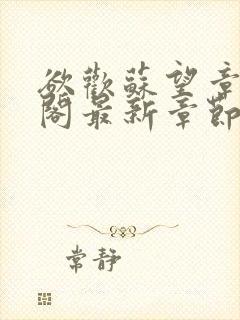 欲歡蘇望章
閣最新章節
常靜